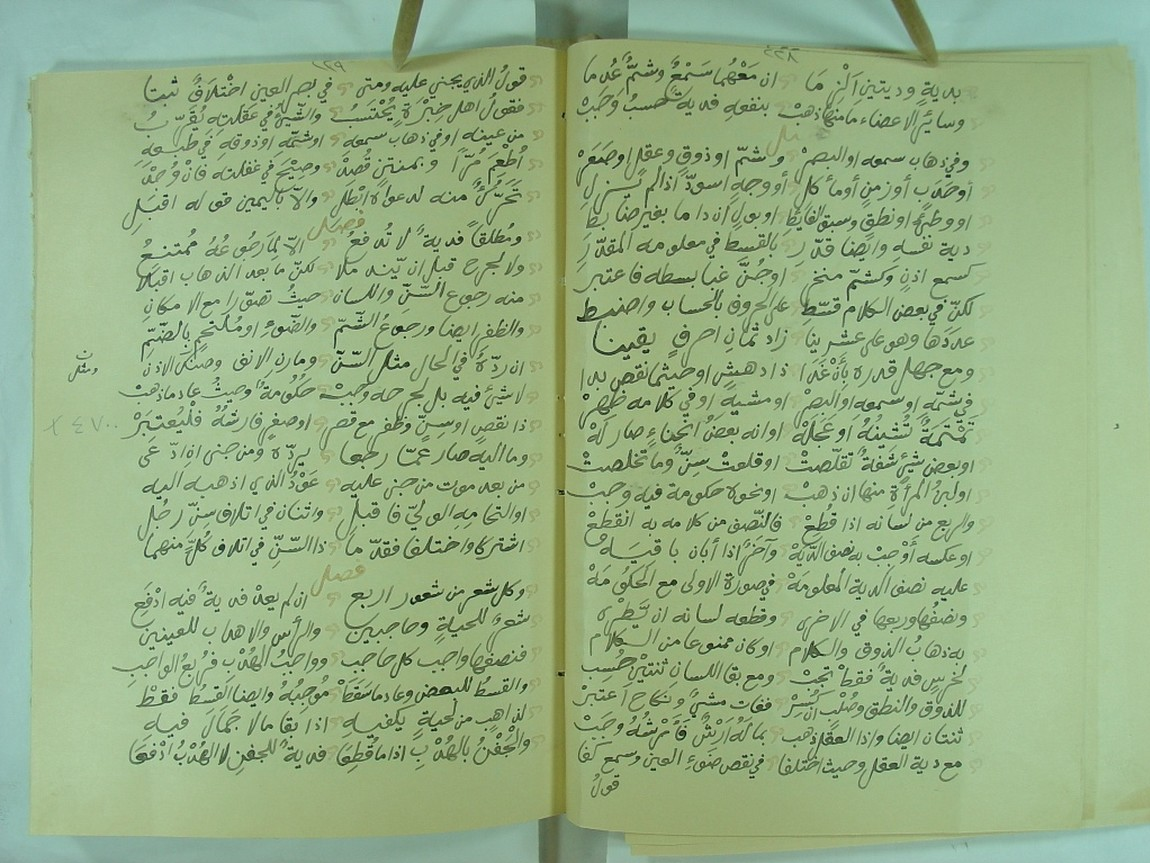 ٢٢٨
بدية وديتين الزِمَ مَا ان معهما سمعٌ وشمٌّ عُدما
وسائرُ الاعضاء ما منها ذهبْ بنفعه فدية حسبُ وَجَبْ
فصل
وفي ذهاب سمعه او البصرْ وشمّ او ذوقٍ وعقلٍ او صَعَرْ
أو حَدَبٍ أو زمنٍ أو مأكلِ أو وجهٍ اسودّ اذا لم يَزُلِ
او وطئه او نطقٍ وسبق الغايطِ او بولٍ ان داما بغير ضابط
دية نفسه وايضا قدّرِ بالقسط في معلومه المقدّرِ
كسمع اذنٍ وكشمّ منخرِ او جُنَّ غبا بسطه فاعتبر
لكنّ في بعض الكلام قسّطِ على الحروف بالحساب واضبط
عددَها وهو على عشرينا زاد ثمانِ احرفٍ يقينا
ومع جهل قدره بِأَنْ غَدَا ذا دهشٍ او حيثما نقص بدا
في شمّه او سمعه او البصرْ او مشيه او في كلامه ظهرْ
تمتمةٌ تشينهُ او عَجَلَهْ او انه بعضُ انحناءٍ صار لَهْ
او بعض شيءٍ شفةٌ تقلّصتْ او قلعتْ سِنٌّ وما تخلصتْ
او لبنُ المرأة منها ان ذهبْ او نحوه حكومة فيه وجبْ
والربع من لسانه اذا قُطِعْ فالنّصف من كلامه به انقطعْ
او عكسه أَوْجِبْ به نصف الدّيةْ وآخرٌ اذا أبان باقيَهْ
عليه نصف الدية المعلومَهْ في صورة الاولى مع الحكومَهْ
ونصفُها وربعها في الاخرى وقطعه لسانه ان يَطْرى
به ذهابُ الذوق والكلام او كان ممنوعا من الكلام
لخرسٍ فديةٌ فقط تجبْ ومع بقا اللسان ثنتين حُسِبْ
للذوق والنطق وصُلْبٌ ان كُسِرْ ففات مشيٌ ونكاح اعتبرْ
ثنتان ايضا واذا العقل ذهب بما لَهُ ارْشٌ فأرشُهُ وجبْ
مع دية العقل وحيث اختلفا في نقص ضوءِ العين وسمع كفا
قولُ
٢٢٩
قولُ الذي يجني عليه ومتى في بصر العين اختلافٌ ثبتا
فقولُ اهل خِبْرةٍ يُحْتَسَبُ والشّيءُ في غفلته يُقرّبُ
من عينه او في ذهاب سمعه او شمّه او ذوقه في طبعه
أُطْعِمَ مُرّاً وبمنتنٍ قُصِدْ وصِيحَ في غفلته فان وُجِدْ
تَحَرُّكٌ منه لدعواه ابْطِلِ والاّ باليمين قوله اقبلِ
فصل
ومُطلقاً فديةٌ لا تُدفعُ الاّ لِمَا رجُوعُهُ ممتنعُ
ولا لجرح قبل ان يندملا لكنّ ما بعد الذهاب اقبلا
منه رجوع السّنّ واللسان حيثُ تصوّرا مع الامكانِ
والظفر ايضا ورجوعُ الشّمّ والضّوءِ او مُلتحمٍ بالضّمّ
ان ردّهُ في الحال مثل السّنّ ومارن الانف ومثل الاذن
ومثل
لا شيءَ فيه بل لجرحه وجبتْ حكُومةٌ وحيثُ عاد ما ذهبْ
ذا نقصٍ او سنٌّ وظفر مع قصرْ او صغرٍ فارشُهُ فلْيُعتبرْ
× ٤٧٠٠
وما اليه صار عمّا رجعا يردّه ومن جنى ان ادّعى
من بعد موت من جنى عليه عَوْدَ الذي اذهبه اليه
او التحامِه الوليّ فاقبلِ واثنان في اتلاف سِنّ رَجُلِ
اشتركا واختلفا فقدّما ذا السّنّ في اتلاف كُلٍّ منهما
فصل
وكل شعر من شعور اربعِ ان لم يعد فديةٌ فيه ادْفعِ
شعرٌ للحيةٍ وحاجبينِ والرأس والاهداب للعينينِ
فنصفُها واجب كل حاجبِ وواجب الهُدب فربع الواجبِ
والقسطُ للبعض وعاد ما سَقَطْ مُوجِبُهُ وايضا القسطُ فقطْ
لذاهبٍ من لحيةٍ يكفيهِ اذا بقا ما لا جَمَالَ فيهِ
والجَفْنُ بالهُدْبِ اذا ما قُطِعَا فديةٌ للجفنِ لا الهُدْبُ ادْفعَا